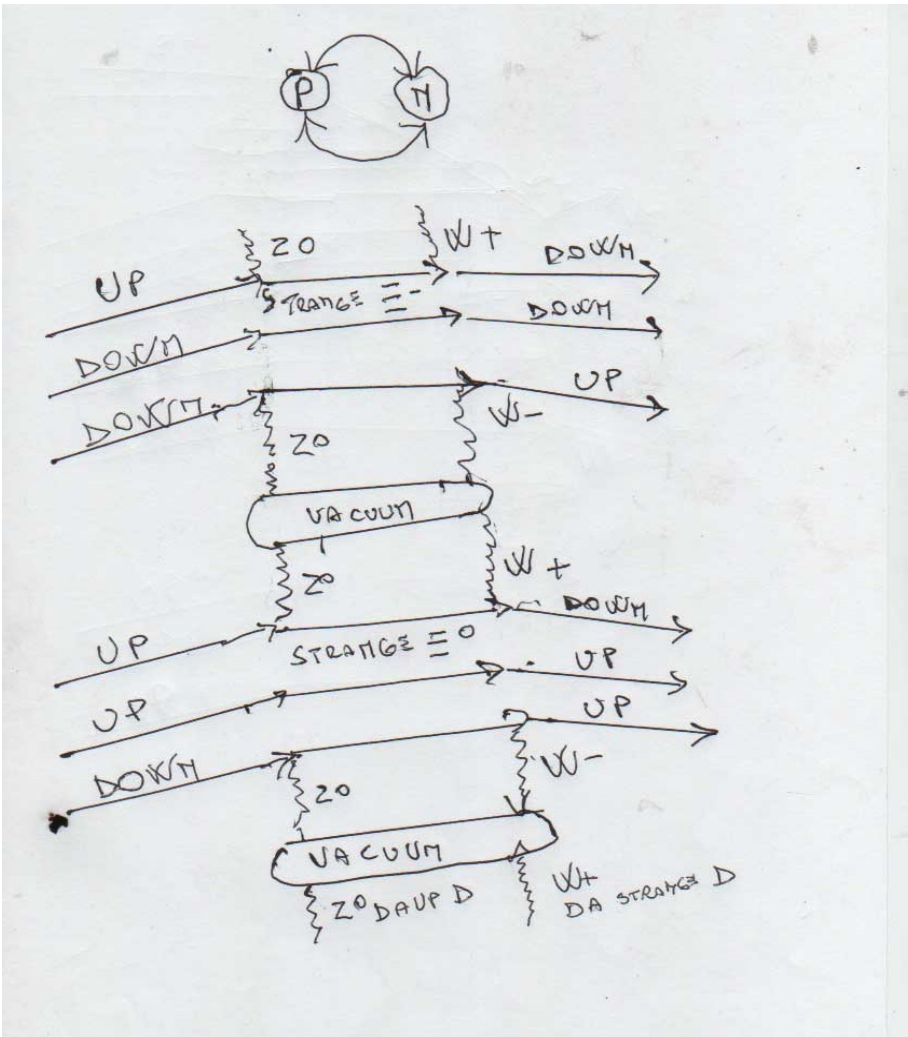 P N
Z0 W+ DOWN
UP STRANGE DOWN
DOWN
DOWN UP
W-
Z0
VACUUM
Z0 W+
UP DOWN
STRANGE 0 UP
UP UP
DOWN W-
Z0
VACUUM
Z0 DA UP D W+
DA STRANGE D